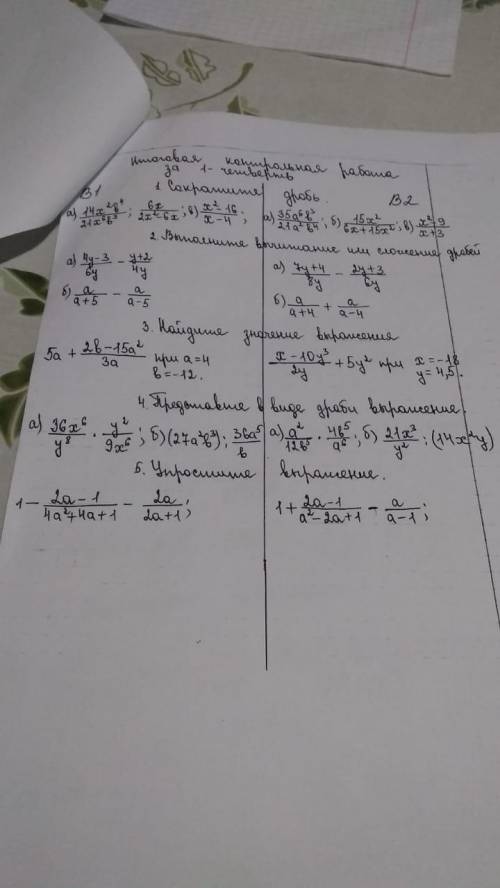 Итоговая контрольная работа
за 1- четверть
В1 В2
1. Сократите дробь.
а) 14x²b⁴/21x⁶b³; 6x/(2x²-6x); в) (x²-16)/(x-4); а) 35a⁶b³/21a²b⁴; б) 15x²/(6x+15x²); в) (x²-9)/(x+3)
2. Выполните вычитание или сложение дробей
а) (4y-3)/6y - (y+2)/4y а) (7y+4)/8y - (2y+3)/6y
б) a/(a+5) - a/(a-5) б) a/(a+4) + a/(a-4)
3. Найдите значение выражения
5a + (2b-15a²)/3a при a=4 b=-12. (x-10y³)/2y + 5y² при x=-18 y=4,5.
4. Представьте в виде дроби выражение.
а) 36x⁶/y⁸ · y²/9x⁶; б) (27a²b³); 36a⁵/b а) a²/12b⁵ · 4b⁵/a⁶; б) 21x³/y²; (14x²y)
5. Упростите выражение.
1 - (2a-1)/(4a²+4a+1) - 2a/(2a+1); 1 + (2a-1)/(a²-2a+1) - a/(a-1);